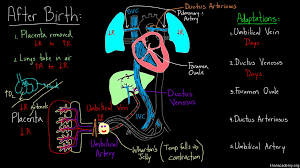 After Birth:
1. Placenta removed
↓R → ↑R
2. Lungs take in air
↑R → ↓R
Placenta
↓R
Umbilical Vein
↑R
Umbilical
Artery
Wharton's
Jelly
(Temp falls up
contraction)
Ductus Arteriosus
Pulmonary
Artery
↓R
↓R
SVC
Foramen
Ovale
Ductus
Venosus
IVC
Adaptations:
1. Umbilical Vein
Days
2. Ductus Venosus
Days
3. Foramen Ovale
4. Ductus Arteriosus
5. Umbilical Artery
khanacademy.org